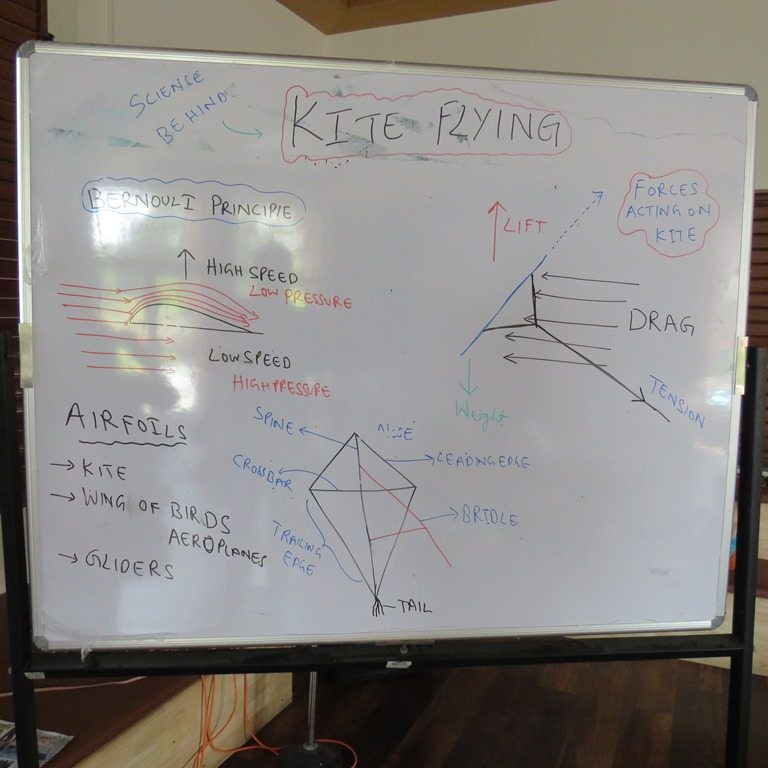 SCIENCE
BEHIND
KITE FLYING
BERNOULI PRINCIPLE
HIGH SPEED
LOW PRESSURE
LOW SPEED
HIGH PRESSURE
AIRFOILS
→ KITE
→ WING OF BIRDS
AEROPLANES
→ GLIDERS
FORCES
ACTING ON
KITE
LIFT
DRAG
TENSION
Weight
SPINE
LEADING EDGE
CROSS BAR
BRIDLE
TRAILING
EDGE
TAIL